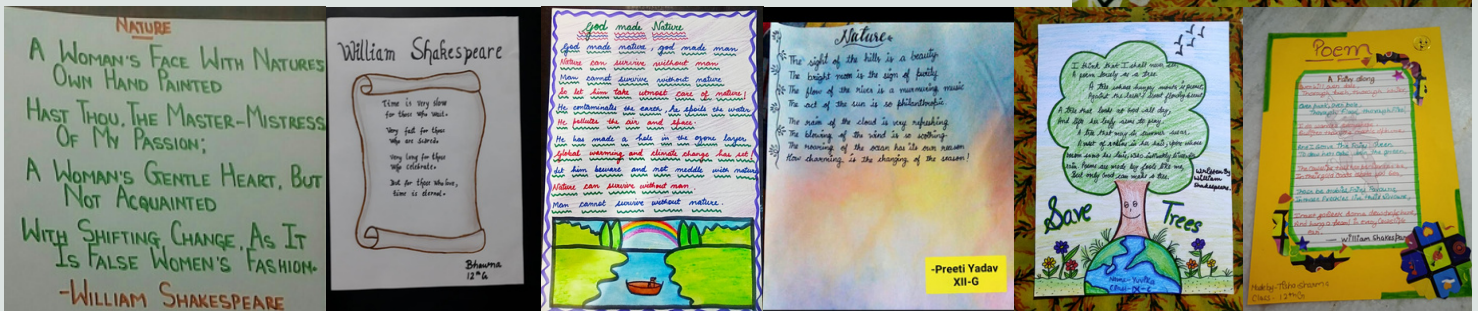 NATURE
A WOMAN'S FACE WITH NATURES
OWN HAND PAINTED
HAST THOU, THE MASTER-MISTRESS
OF MY PASSION;
A WOMAN'S GENTLE HEART, BUT
NOT ACQUAINTED
WITH SHIFTING CHANGE, AS IT
IS FALSE WOMEN'S FASHION.
-WILLIAM SHAKESPEARE
William Shakespeare
Time is very slow
for those who wait.
Very fast for those
Who are scared.
Very long for those
Who celebrate.
But for those who love,
time is eternal.
Bhawna
12th G
God made Nature
God made nature, god made man
Nature can survive without man
Man cannot survive without nature
So let him take utmost care of nature!
He contaminates the earth, he spoils the water
He pollutes the air and space.
He has made a hole in the ozone layer
Global warming and climate change has set
let him beware and not meddle with nature
Nature can survive without man
Man cannot survive without nature.
Nature
The sight of the hills is a beauty
The bright moon is the sign of purity
The flow of the river is a murmuring music
The act of the sun is so philanthropic
The rain of the cloud is very refreshing
The blowing of the wind is so soothing
The roaring of the ocean has its own reason
How charming, is the changing of the season!
-Preeti Yadav
XII-G
I think that I shall never see,
A poem lovely as a tree.
A tree that looks at God all day,
And lifts her leafy arms to pray.
A tree that may in summer wear,
A nest of robins in her hair,
Poem are made by fools like me,
But only God can make a tree.
Written By
William
Shakespeare.
Save Trees
Name-
Class-IX-G
Poem
A Fairy Song
Over hill, over dale,
Thorough bush, thorough brier,
Over park, over pale,
Thorough flood, thorough fire!
And I serve the Fairy Queen
- William Shakespeare
Made by-
Class- 12th G